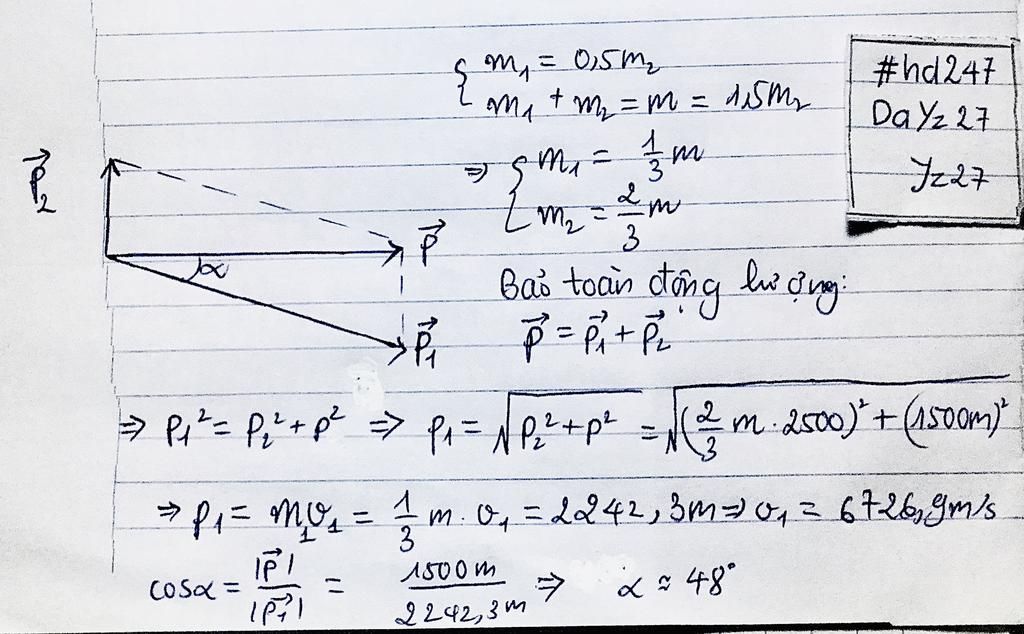 m₁ = 0,5m₂
m₁ + m₂ = m = 1,5m₂
#hd247
DaYz27
Yz27
⇒ { m₁ = 1/3 m
m₂ = 2/3 m
P⃗₂
P⃗
α
P⃗₁
Bảo toàn động lượng:
P⃗ = P⃗₁ + P⃗₂
⇒ P₁² = P₂² + P² ⇒ P₁ = √(P₂² + P²) = √((2/3 m · 2500)² + (1500m)²)
⇒ P₁ = m₁v₁ = 1/3 m · v₁ = 2242,3m ⇒ v₁ = 6726,9m/s
cosα = |P⃗|/|P⃗₁| = 1500m/2242,3m ⇒ α ≈ 48°